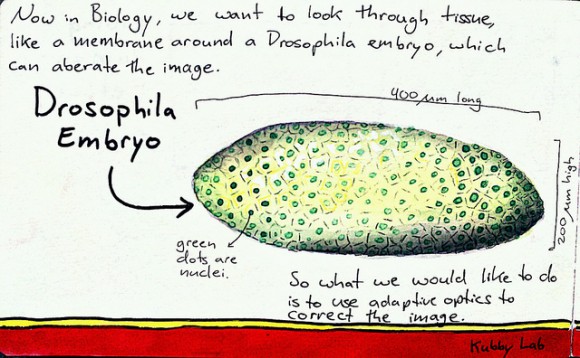 Now in Biology, we want to look through tissue,
like a membrane around a Drosophila embryo, which
can aberate the image.
400 μm long
Drosophila
Embryo
200 μm high
green
dots are
nuclei.
So what we would like to do
is to use adaptive optics to
correct the image.
Kubby Lab